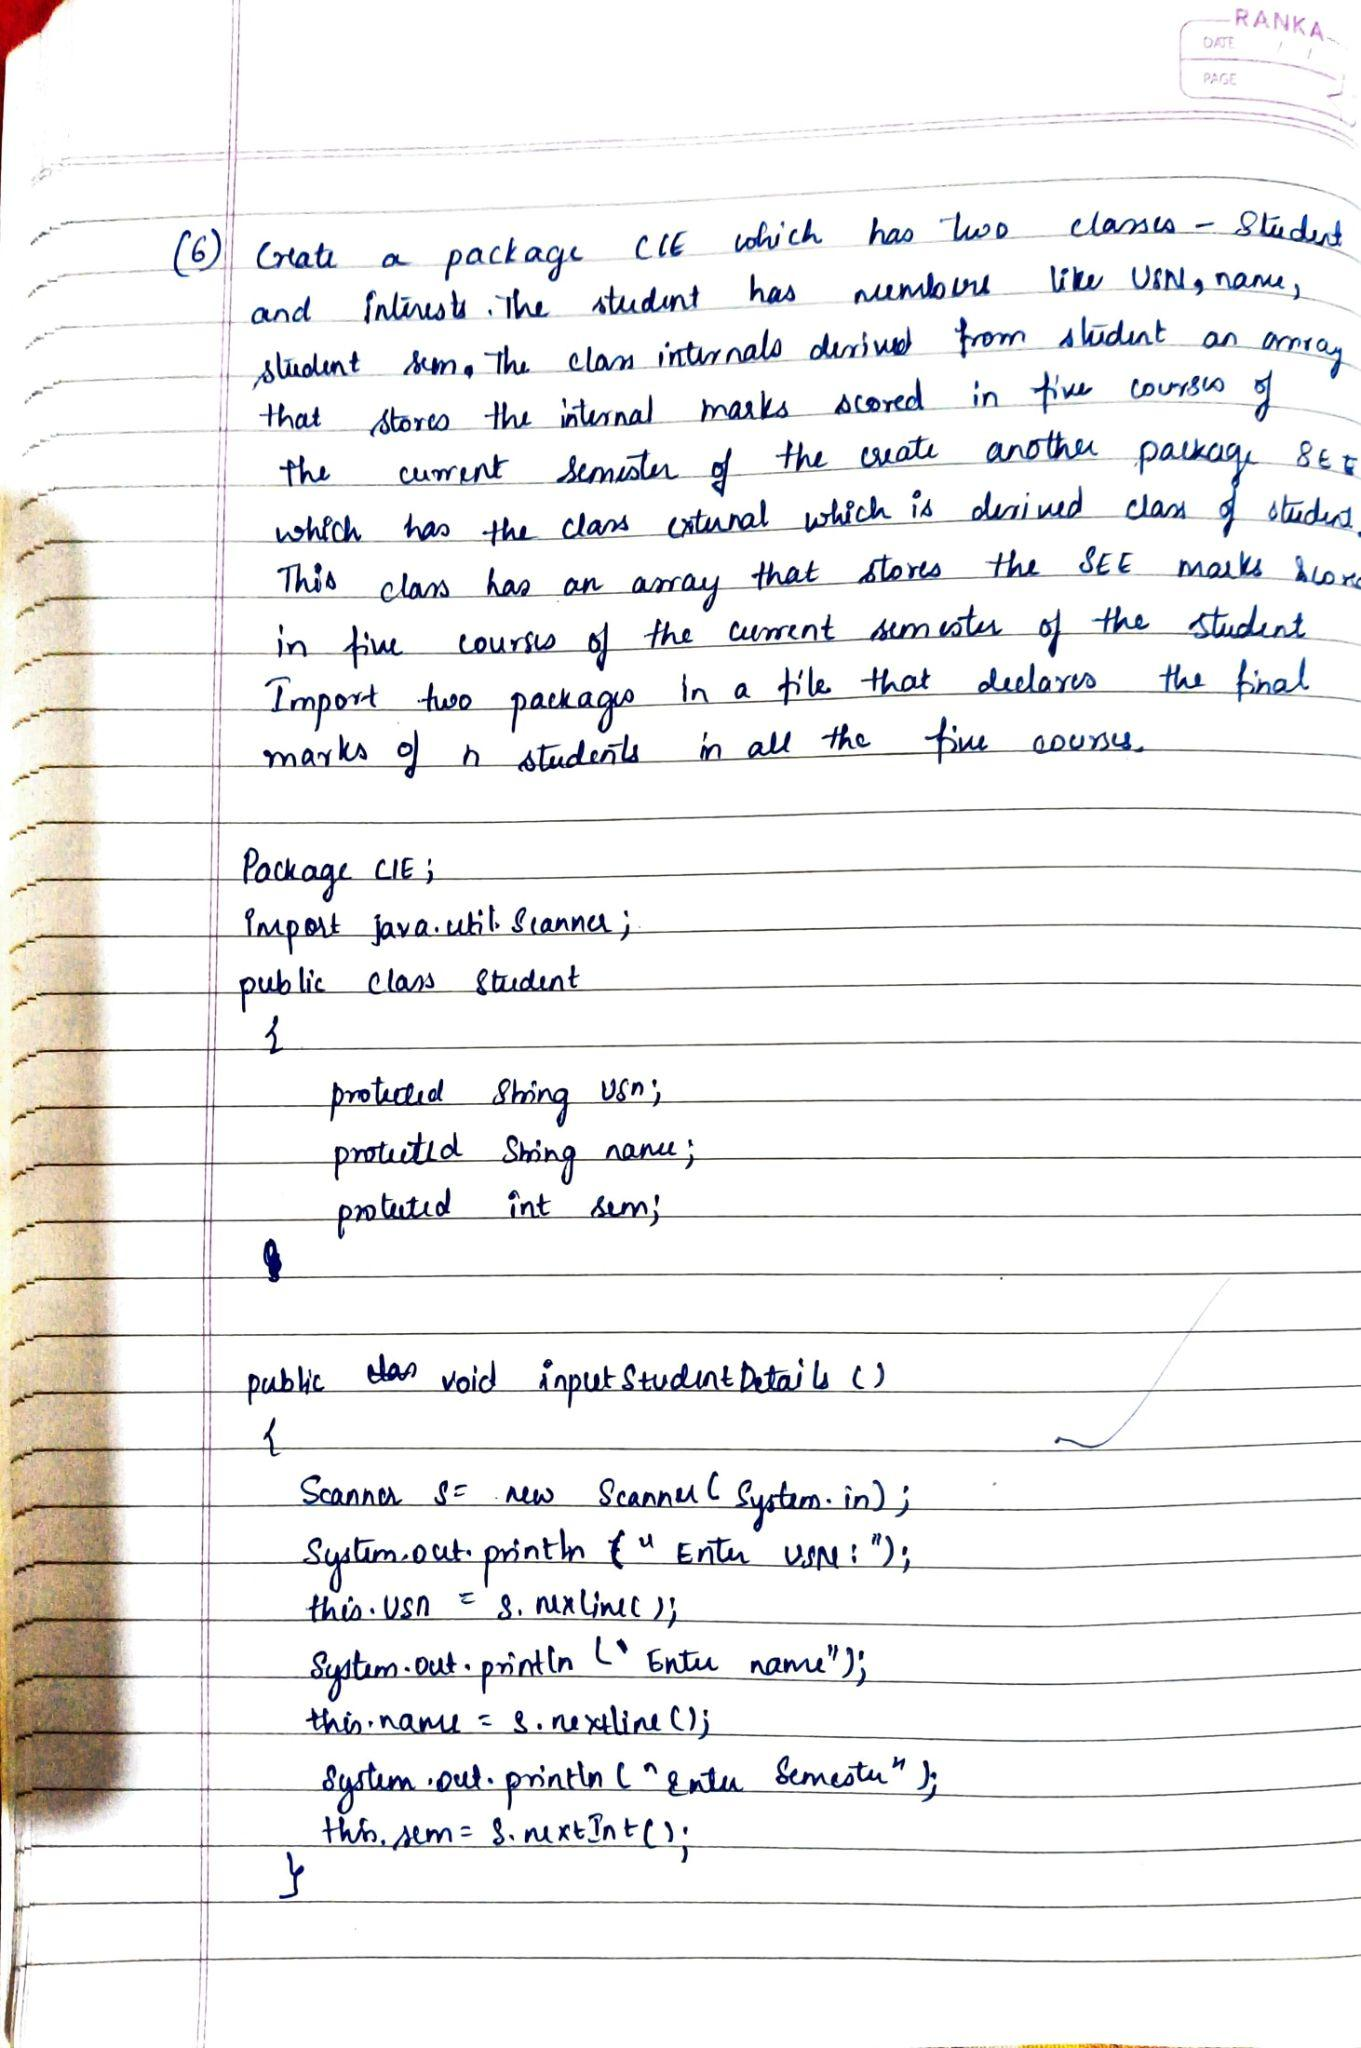 RANKA
DATE / /
PAGE
(6) Create a package CIE which has two classes - Student
and Interests. The student has members like USN, name,
student sem. The class internals derived from student an array
that stores the internal marks scored in five courses of
the current semester of the create another package SEE
which has the class external which is derived class of student.
This class has an array that stores the SEE marks score
in five courses of the current semester of the student
Import two packages in a file that declares the final
marks of n students in all the five courses.
Package CIE;
Import java.util.Scanner;
public class Student
{
protected String usn;
protected String name;
protected int sem;
public class void inputStudentDetails ()
{
Scanner s= new Scanner(System.in);
System.out.println ("Enter USN:");
this.usn = s.nexline();
System.out.println ("Enter name");
this.name = s.nextline();
System.out.println ("Enter Semester");
this.sem = s.nextInt();
}